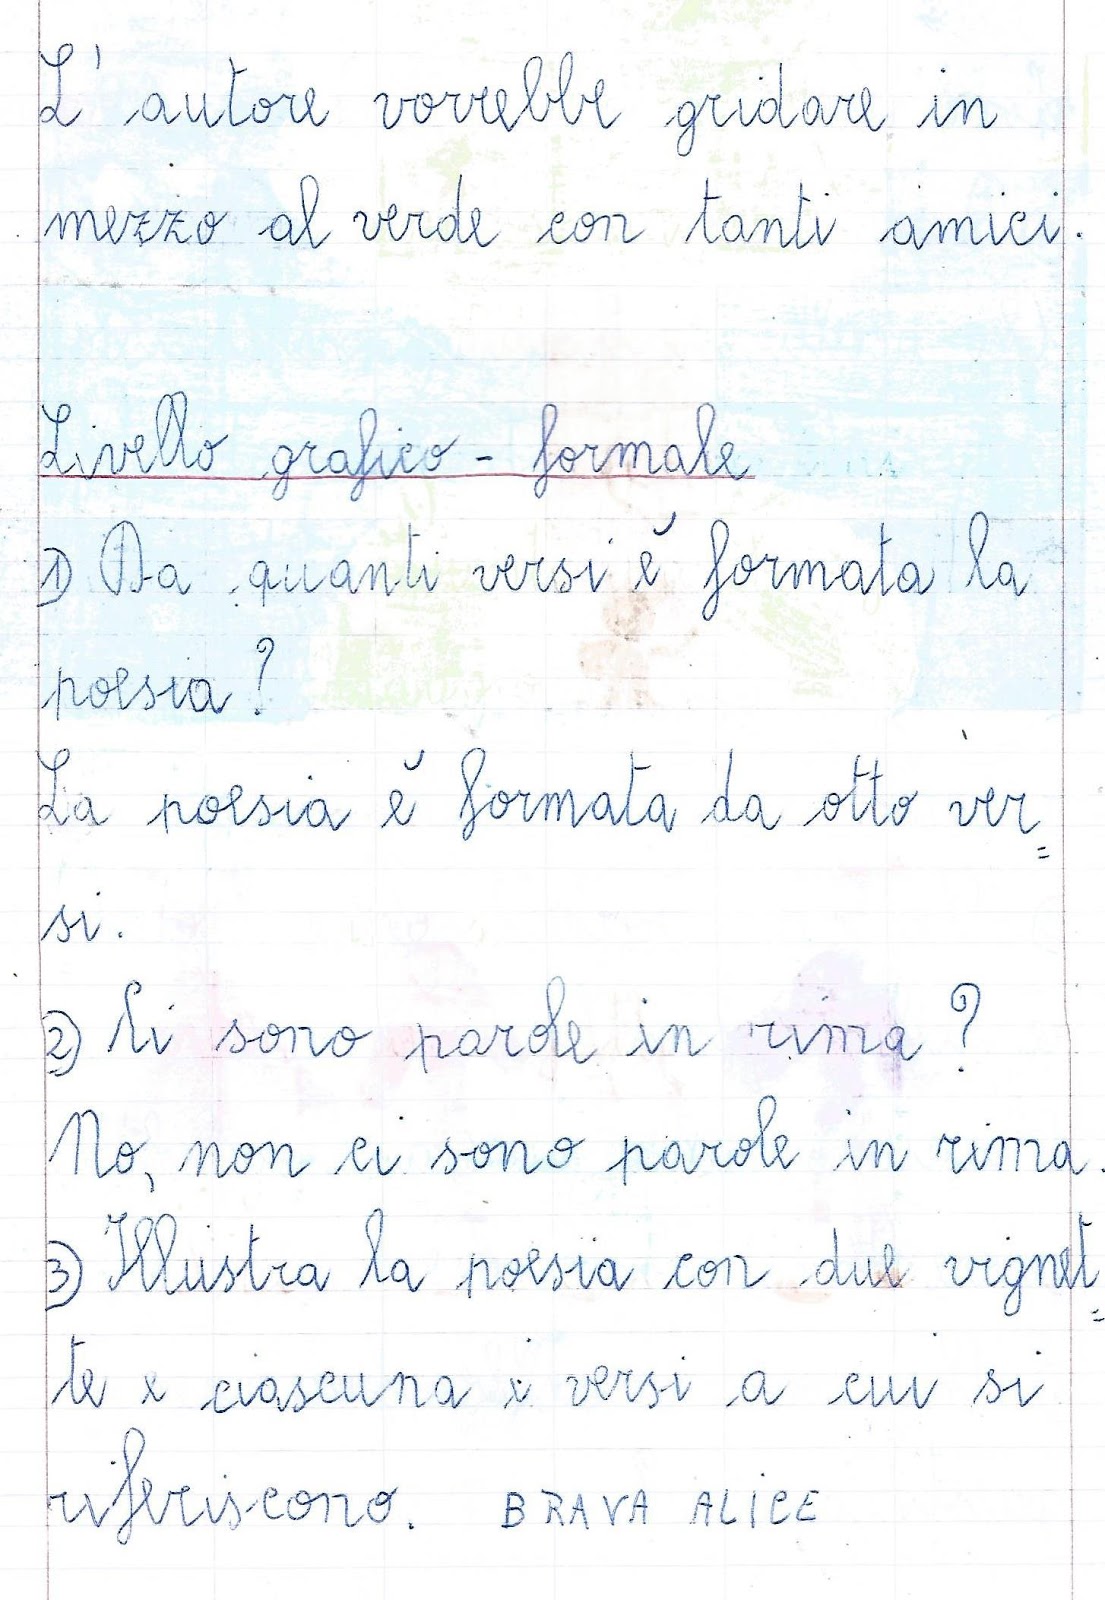 L'autore vorrebbe gridare in
mezzo al verde con tanti amici.
Livello grafico - formale
1) Da quanti versi è formata la
poesia?
La poesia è formata da otto ver=
si.
2) Ci sono parole in rima?
No, non ci sono parole in rima.
3) Illustra la poesia con due vignet=
te x ciascuna x versi a cui si
riferiscono. BRAVA ALICE